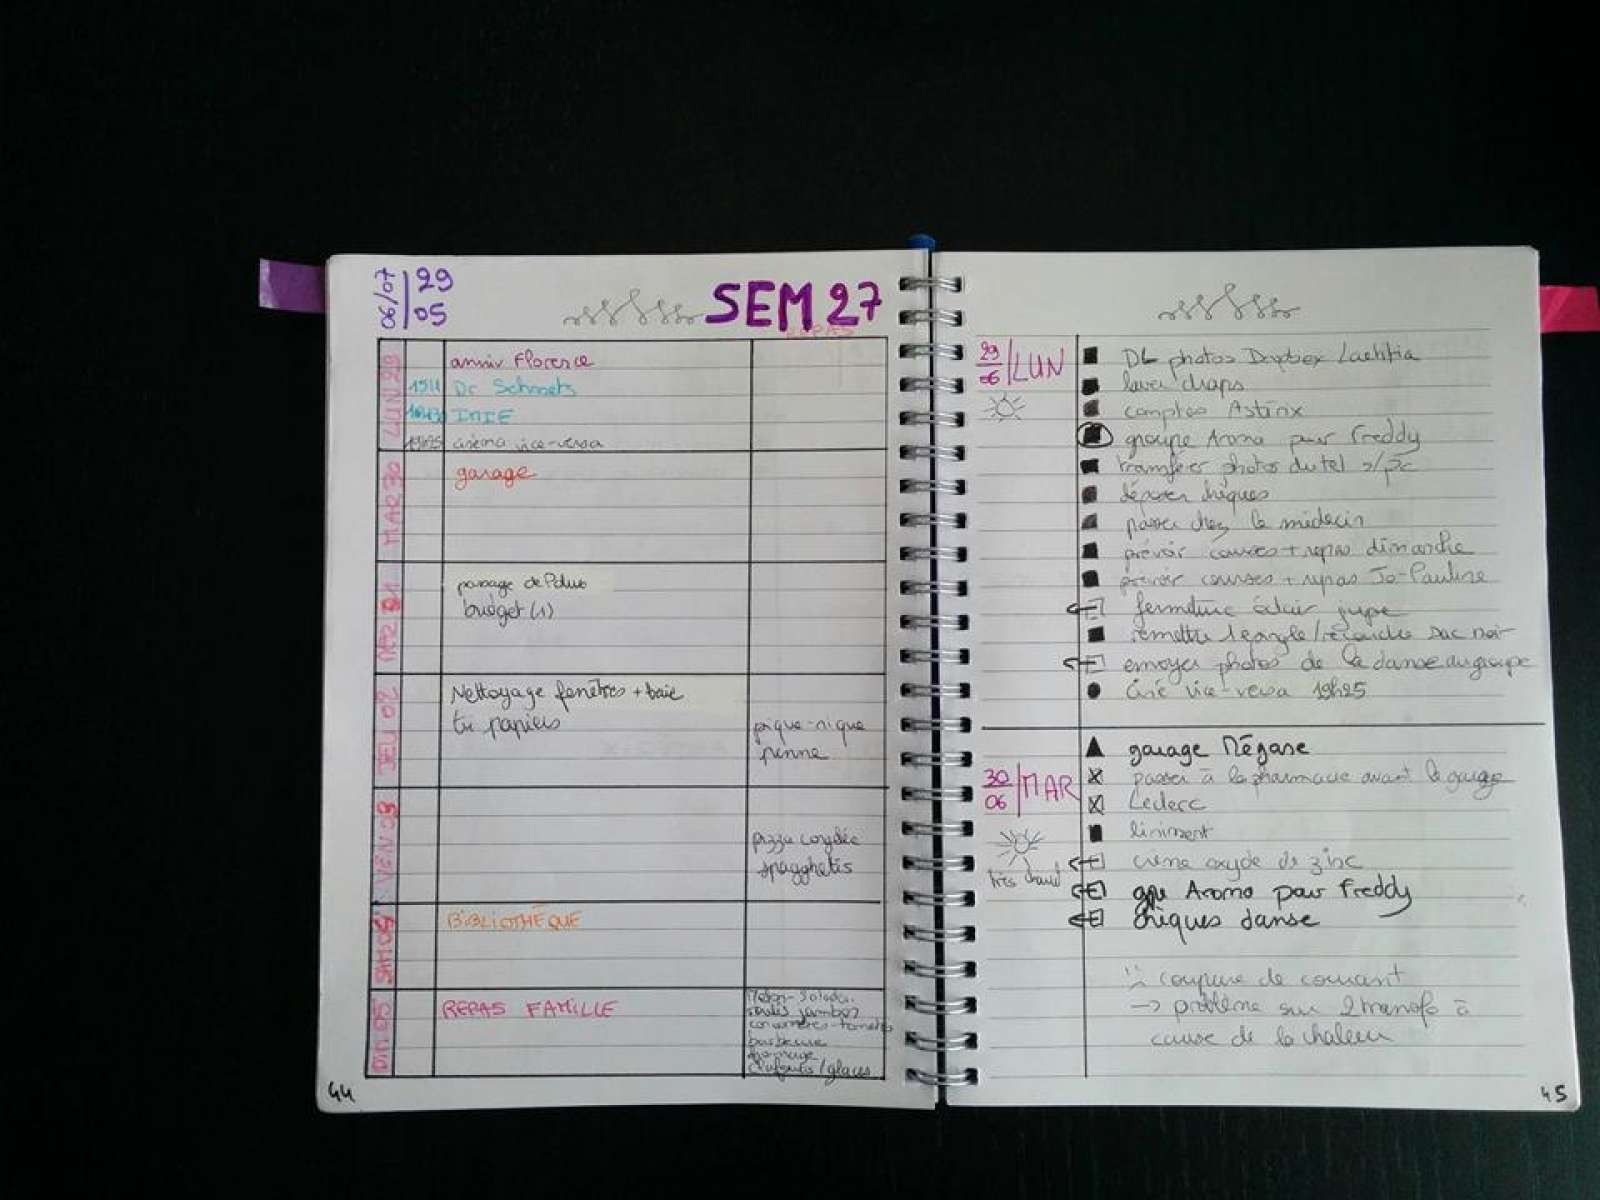 06/07
29
05
SEM 27
REPAS
LUN 29
anniv Florence
15H Dr Schmets
IME
19h25 cinéma vice-versa
MAR 30
garage
MER 01
passage de Polux
budget (1)
JEU 02
Nettoyage fenêtres + baie
tri papiers
pique-nique
penne
VEN 03
pizza
spagghetis
SAM 04
BIBLIOTHÈQUE
DIM 05
REPAS FAMILLE
Melon-salade
roulés jambon
concombres-tomates
barbecue
fromage
/glaces
44
29
06
LUN
DL photos Dropbox Laetitia
laver draps
comptes Astrix
groupe Aroma pour Freddy
transférer photos du tel s/pc
déposer chèques
passer chez le médecin
prévoir courses + repas dimanche
prévoir courses + repas Jo-Pauline
fermeture éclair jupe
remettre sac noir
envoyer photos de la danse au groupe
ciné vice-versa 19h25
30
06
MAR
très chaud
garage Mégane
passer à la pharmacie avant le garage
Leclerc
liniment
crème oxyde de zinc
gpe Aroma pour Freddy
chèques danse
coupure de courant
→ problème sur 2 transfo à
cause de la chaleur
45